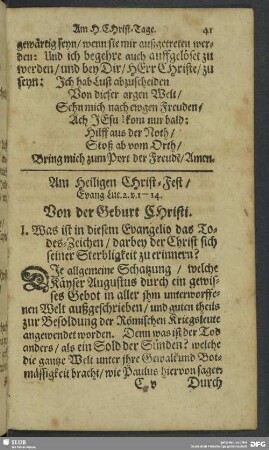 Am H. CHrist-Tage. 41
gewärtig seyn/ wenn sie mir außgetreten wer-
den: Und ich begehre auch auffgelöset zu
werden/ und bey Dir/ HErr CHriste/ zu
seyn: Ich hab Lust abzuscheiden
Von dieser argen Welt/
Sehn mich nach ewgen Freuden/
Ach JEsu! kom nur bald:
Hilff aus der Noth/
Stoß ab vom Orth/
Bring mich zum Port der Freude/ Amen.
Am Heiligen CHrist-Fest/
Evang. Luc. 2. v. 1–14.
Von der Geburt CHristi.
I. Was ist in diesem Evangelio das To-
des-Zeichen/ darbey der Christ sich
seiner Sterbligkeit zu erinnern?
DIe allgemeine Schatzung/ welche
Käyser Augustus durch ein gewis-
ses Gebot in aller jhm unterworffe-
nen Welt außgeschrieben/ und guten theils
zur Besoldung der Römischen Kriegsleute
angewendet worden. Denn was ist der Tod
anders/ als ein Sold der Sünden? welche
die gantze Welt unter jhre Gewalt und Bot-
mässigkeit bracht/ wie Paulus hiervon saget:
C v Durch
SLUB
DFG